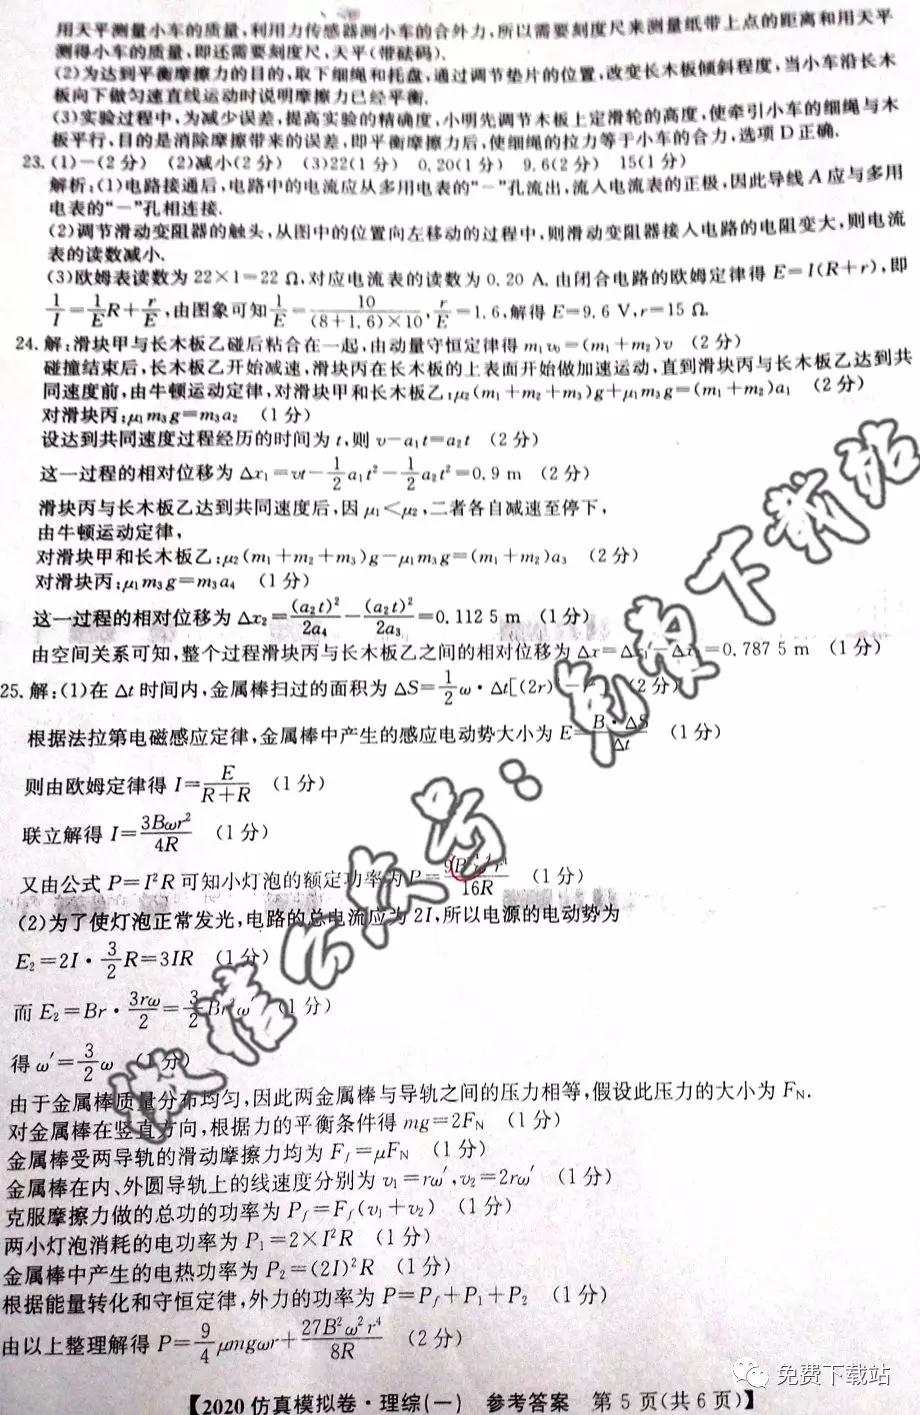 用天平测量小车的质量,利用力传感器测小车的合外力,所以需要刻度尺来测量纸带上点的距离和用天平
测得小车的质量,即还需要刻度尺,天平(带砝码).
(2)为达到平衡摩擦力的目的,取下细绳和托盘,通过调节垫片的位置,改变长木板倾斜程度,当小车沿长木
板向下做匀速直线运动时说明摩擦力已经平衡.
(3)实验过程中,为减少误差,提高实验的精确度,小明先调节木板上定滑轮的高度,使牵引小车的细绳与木
板平行,目的是消除摩擦带来的误差,即平衡摩擦力后,使细绳的拉力等于小车的合力,选项D正确.
23.(1)一(2分) (2)减小(2分) (3)22(1分) 0.20(1分) 9.6(2分) 15(1分)
解析:(1)电路接通后,电路中的电流应从多用电表的“一”孔流出,流入电流表的正极,因此导线A应与多用
电表的“一”孔相连接.
(2)调节滑动变阻器的触头,从图中的位置向左移动的过程中,则滑动变阻器接入电路的电阻变大,则电流
表的读数减小.
(3)欧姆表读数为22×1=22 Ω,对应电流表的读数为0.20 A.由闭合电路的欧姆定律得E=I(R+r),即
1/I=1/E R+r/E,由图象可知1/E=10/((8+1.6)×10),r/E=1.6,解得E=9.6 V,r=15 Ω.
24.解:滑块甲与长木板乙碰后粘合在一起,由动量守恒定律得m₁v₀=(m₁+m₂)v (2分)
碰撞结束后,长木板乙开始减速,滑块丙在长木板的上表面开始做加速运动,直到滑块丙与长木板乙达到共
同速度前,由牛顿运动定律,对滑块甲和长木板乙:μ₂(m₁+m₂+m₃)g+μ₁m₃g=(m₁+m₂)a₁ (2分)
对滑块丙:μ₁m₃g=m₃a₂ (1分)
设达到共同速度过程经历的时间为t,则v-a₁t=a₂t (2分)
这一过程的相对位移为Δx₁=vt-1/2 a₁t²-1/2 a₂t²=0.9 m (2分)
滑块丙与长木板乙达到共同速度后,因μ₁<μ₂,二者各自减速至停下,
由牛顿运动定律,
对滑块甲和长木板乙:μ₂(m₁+m₂+m₃)g-μ₁m₃g=(m₁+m₂)a₃ (2分)
对滑块丙:μ₁m₃g=m₃a₄ (1分)
这一过程的相对位移为Δx₂=(a₂t)²/2a₄-(a₂t)²/2a₃=0.112 5 m (1分)
由空间关系可知,整个过程滑块丙与长木板乙之间的相对位移为Δx=Δx₁-Δx =0.787 5 m (1分)
25.解:(1)在Δt时间内,金属棒扫过的面积为ΔS=1/2 ω·Δt[(2r) (2分)
根据法拉第电磁感应定律,金属棒中产生的感应电动势大小为E=B·ΔS/Δt (1分)
则由欧姆定律得I=E/(R+R) (1分)
联立解得I=3Bωr²/4R (1分)
又由公式P=I²R可知小灯泡的额定功率为P= /16R (1分)
(2)为了使灯泡正常发光,电路的总电流应为2I,所以电源的电动势为
E₂=2I·3/2 R=3IR (1分)
而E₂=Br·3rω/2=3/2 Br²ω′ (1分)
得ω′=3/2 ω (1分)
由于金属棒质量分布均匀,因此两金属棒与导轨之间的压力相等,假设此压力的大小为F_N.
对金属棒在竖直方向,根据力的平衡条件得mg=2F_N (1分)
金属棒受两导轨的滑动摩擦力均为F_f=μF_N (1分)
金属棒在内、外圆导轨上的线速度分别为v₁=rω′,v₂=2rω′ (1分)
克服摩擦力做的总功的功率为P_f=F_f(v₁+v₂) (1分)
两小灯泡消耗的电功率为P₁=2×I²R (1分)
金属棒中产生的电热功率为P₂=(2I)²R (1分)
根据能量转化和守恒定律,外力的功率为P=P_f+P₁+P₂ (1分)
由以上整理解得P=9/4 μmgωr+27B²ω²r⁴/8R (2分)
微信公众号:免费下载站
免费下载站
【2020仿真模拟卷·理综(一) 参考答案 第5页(共6页)】